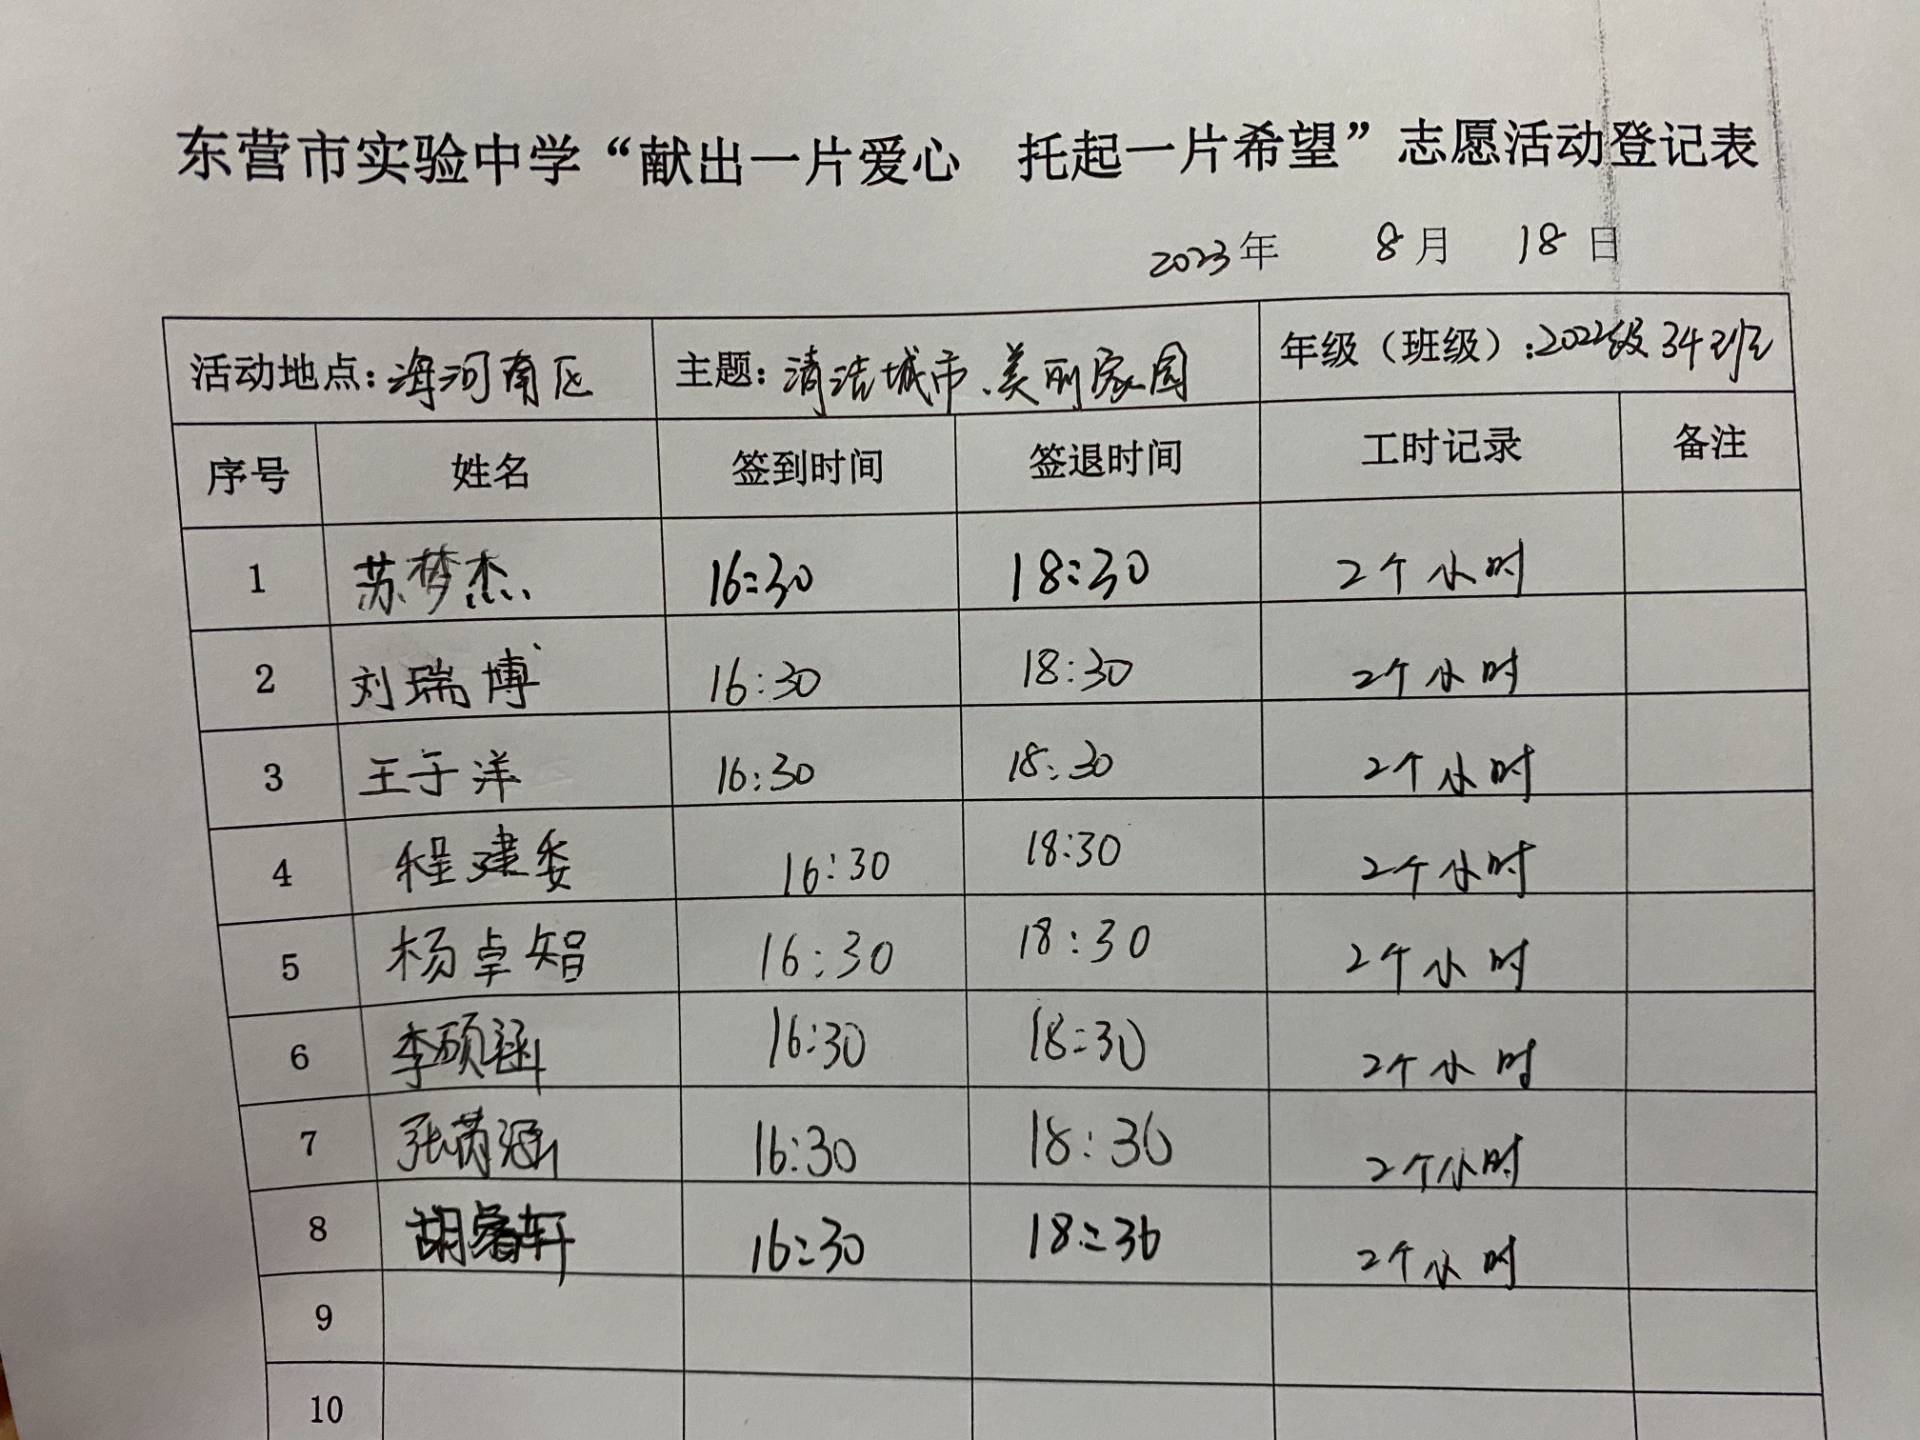 东营市实验中学“献出一片爱心 托起一片希望”志愿活动登记表
2023年 8月 18日
活动地点:海河南区 主题:清洁城市、美丽家园 年级（班级）:2022级34班
序号 姓名 签到时间 签退时间 工时记录 备注
1 苏梦杰 16:30 18:30 2个小时
2 刘瑞博 16:30 18:30 2个小时
3 王于洋 16:30 18:30 2个小时
4 程建委 16:30 18:30 2个小时
5 杨卓智 16:30 18:30 2个小时
6 李硕涵 16:30 18:30 2个小时
7 张芮涵 16:30 18:30 2个小时
8 胡睿轩 16:30 18:30 2个小时
9
10